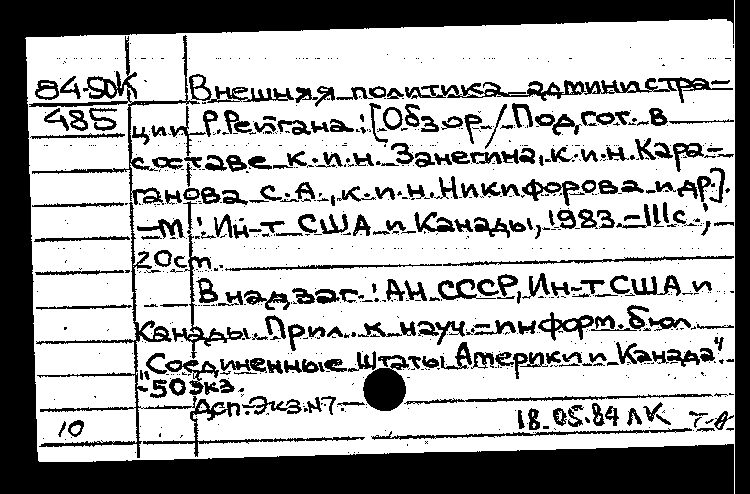 84-50К Внешняя политика администра-
485 ции Р.Рейгана: [Обзор/Подгот. в
составе к.и.н. Занегина, к.и.н. Кара-
ганова С.А., к.и.н. Никифорова и др.].
-М: Ин-т США и Канады, 1983.-111с.;
20cm.
В надзаг.: АН СССР, Ин-т США и
Канады. Прил. к науч.-информ. бюл.
"Соединенные Штаты Америки и Канада"
-50экз.
Дсп-Экз.N7.
10 18.05.84 ЛК